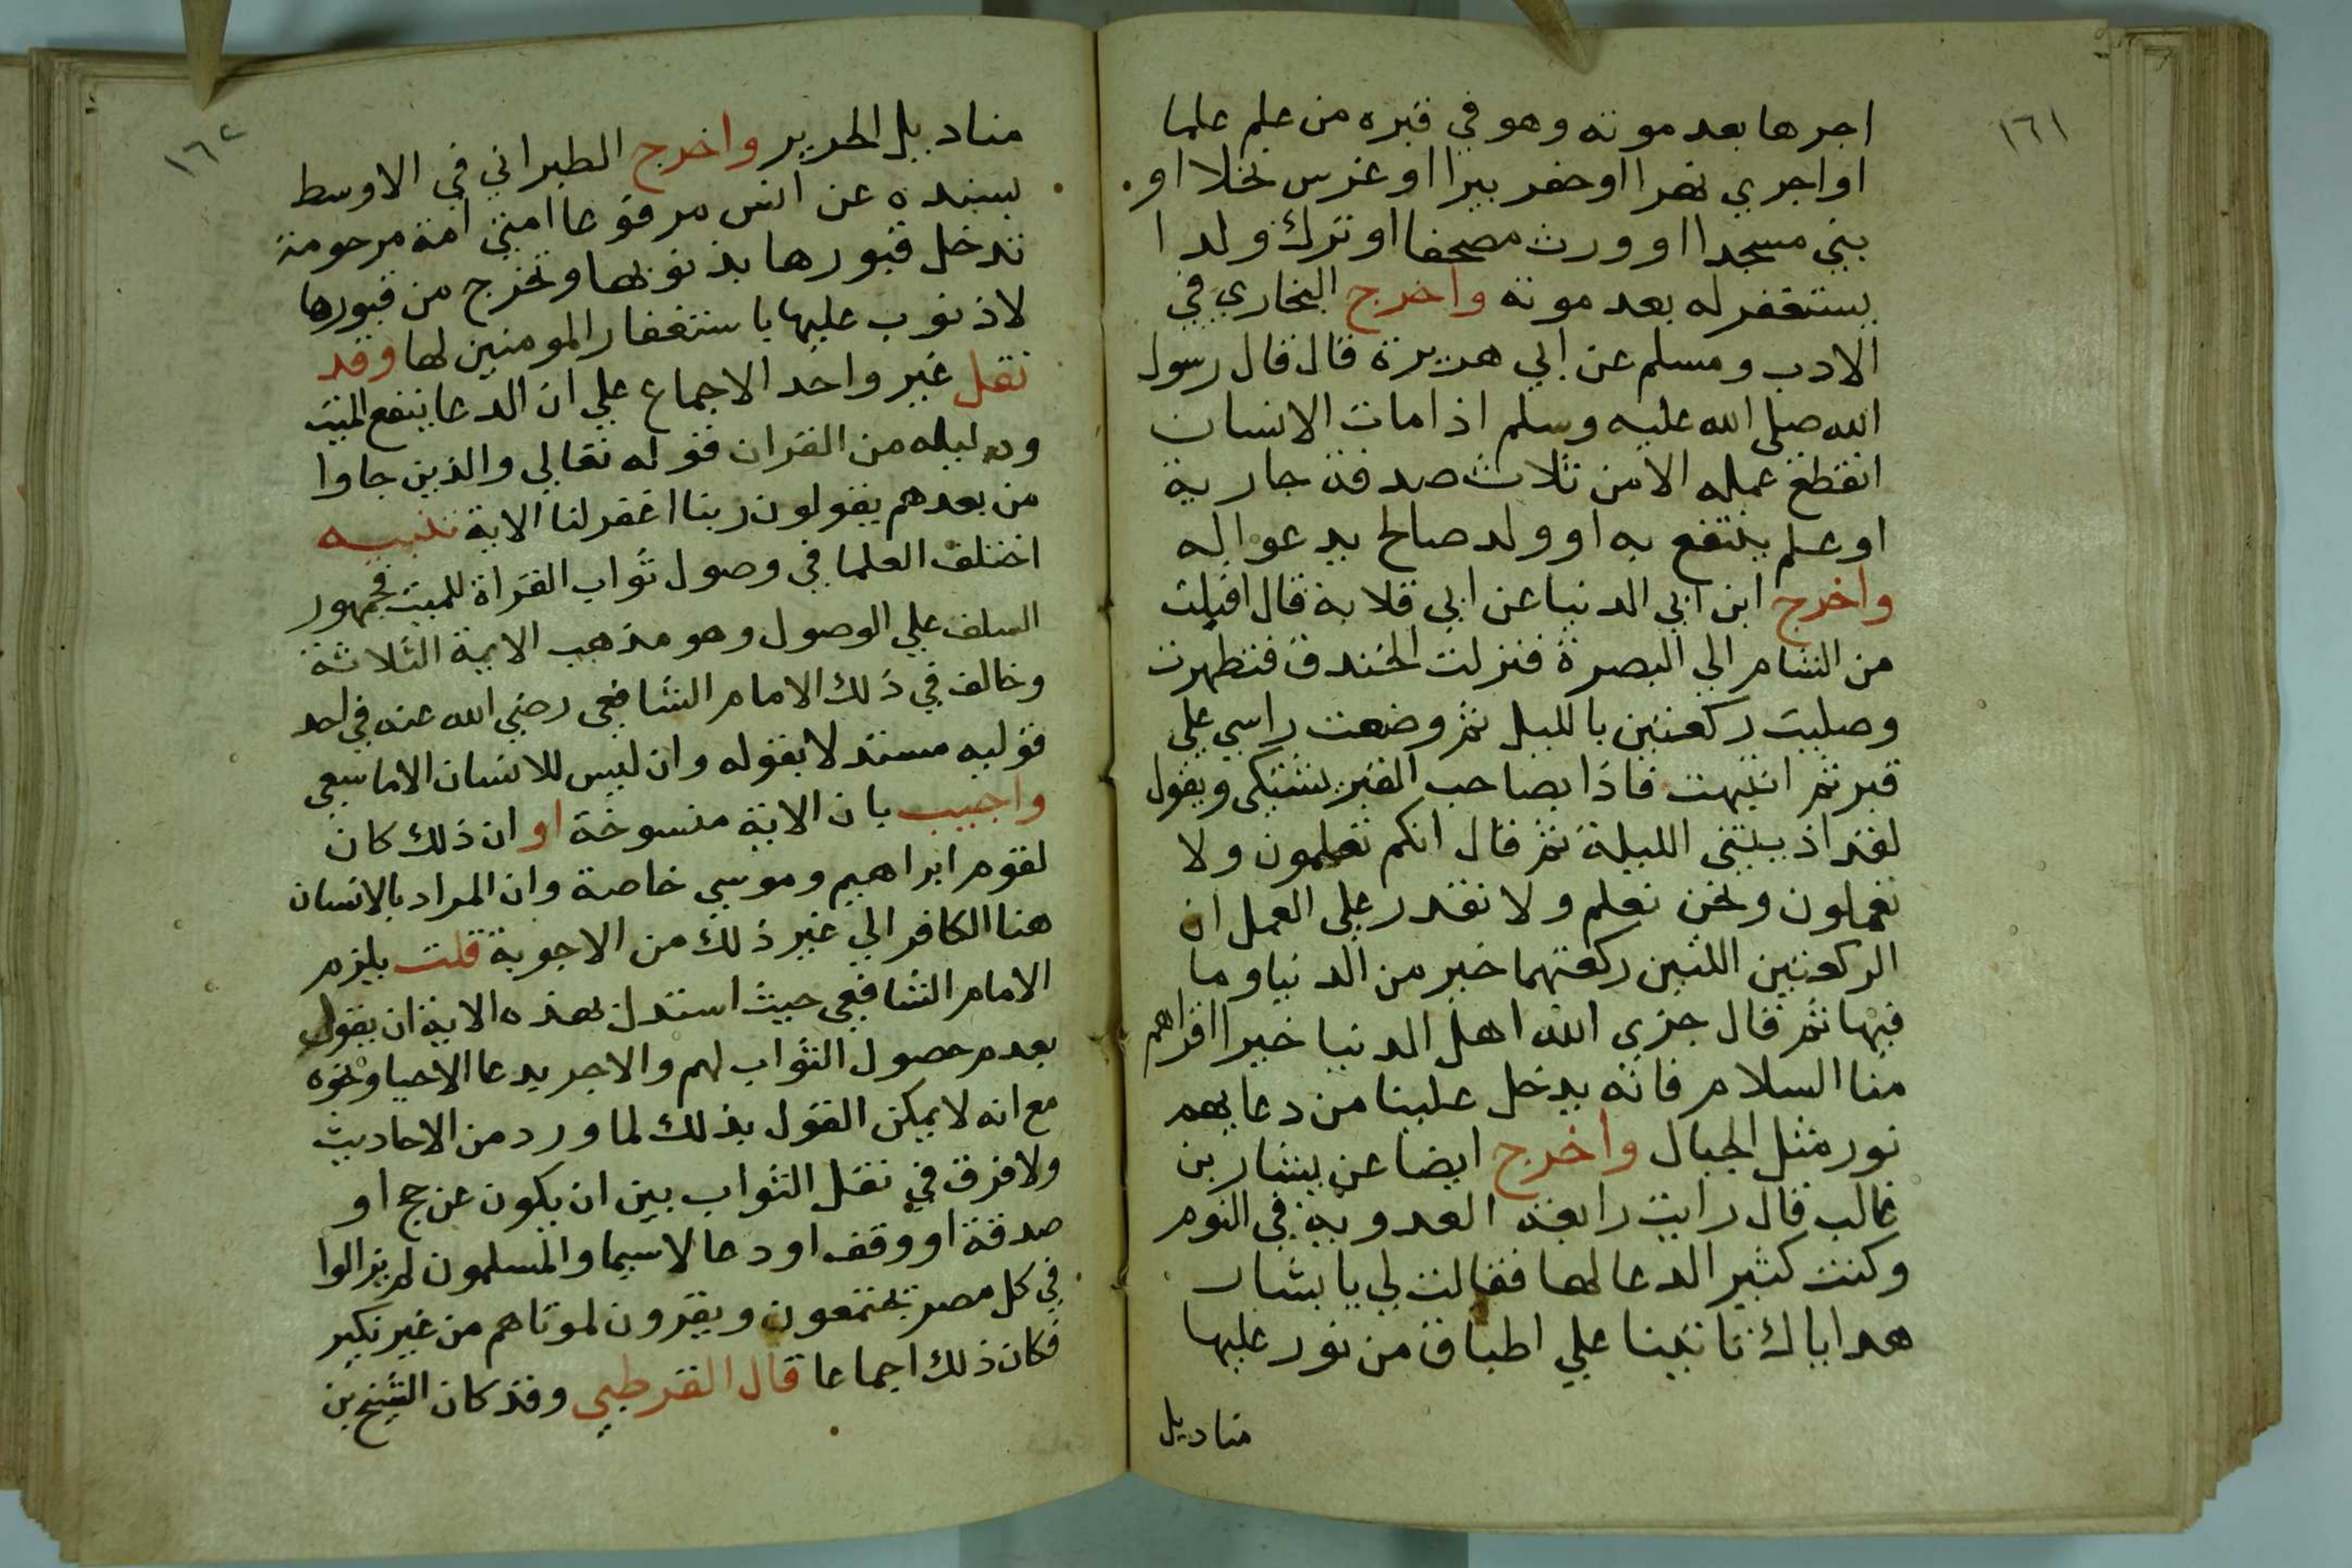 ١٦١
اجرها بعد موته وهو في قبره من علم علما
او اجري نهرا او حفر بيرا او غرس نخلا او
بني مسجدا او ورث مصحفا او ترك ولدا
يستغفر له بعد موته واخرج البخاري في
الادب ومسلم عن ابي هريرة قال قال رسول
الله صلي الله عليه وسلم اذا مات الانسان
انقطع عمله الا من ثلاث صدقة جارية
او علم ينتفع به او ولد صالح يدعوا له
واخرج ابن ابي الدنيا عن ابي قلابة قال اقبلت
من الشام الي البصرة فنزلت الخندق فتطهرت
وصليت ركعتين بالليل ثم وضعت راسي علي
قبر ثم انتبهت فاذا بصاحب القبر يشتكي ويقول
لقد اذيتني الليلة ثم قال انكم تعلمون ولا
تعملون ونحن نعلم ولا نقدر علي العمل ان
الركعتين اللتين ركعتهما خير من الدنيا وما
فيها ثم قال جزي الله اهل الدنيا خيرا اقراهم
منا السلام فانه يدخل علينا من دعايهم
نور مثل الجبال واخرج ايضا عن بشار بن
غالب قال رايت رابعة العدوية في النوم
وكنت كثير الدعا لها فقالت لي يا بشار
هداياك تاتينا علي اطباق من نور عليها
مناديل
١٦٢
مناديل الحرير واخرج الطبراني في الاوسط
بسنده عن انس مرفوعا امتي امة مرحومة
تدخل قبورها بذنوبها وتخرج من قبورها
لا ذنوب عليها باستغفار المومنين لها وقد
نقل غير واحد الاجماع علي ان الدعا ينفع الميت
ودليله من القران قوله تعالي والذين جاوا
من بعدهم يقولون ربنا اغفر لنا الاية تنبيه
اختلف العلما في وصول ثواب القراة للميت فجمهور
السلف علي الوصول وهو مذهب الايمة الثلاثة
وخالف في ذلك الامام الشافعي رضي الله عنه في احد
قوليه مستدلا بقوله وان ليس للانسان الا ما سعي
واجيب بان الاية منسوخة او ان ذلك كان
لقوم ابراهيم وموسي خاصة وان المراد بالانسان
هنا الكافر الي غير ذلك من الاجوبة قلت يلزم
الامام الشافعي حيث استدل بهذه الاية ان يقول
بعدم حصول الثواب لهم والاجر بدعا الاحيا ونحوه
مع انه لا يمكن القول بذلك لما ورد من الاحاديث
ولا فرق في نقل الثواب بين ان يكون عن حج او
صدقة او وقف او دعا لا سيما والمسلمون لم يزالوا
في كل مصر يجتمعون ويقرون لموتاهم من غير نكير
فكان ذلك اجماعا قال القرطبي وقد كان الشيخ بن